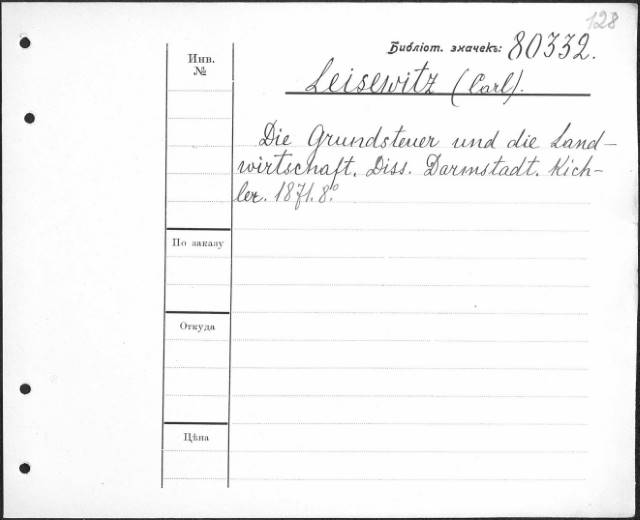 128
Библіот. значекъ: 80332.
Инв.
№
Leisewitz (Carl).
Die Grundsteuer und die Land-
wirtschaft. Diss. Darmstadt. Kich-
ler. 1871. 8º
По заказу
Откуда
Цѣна